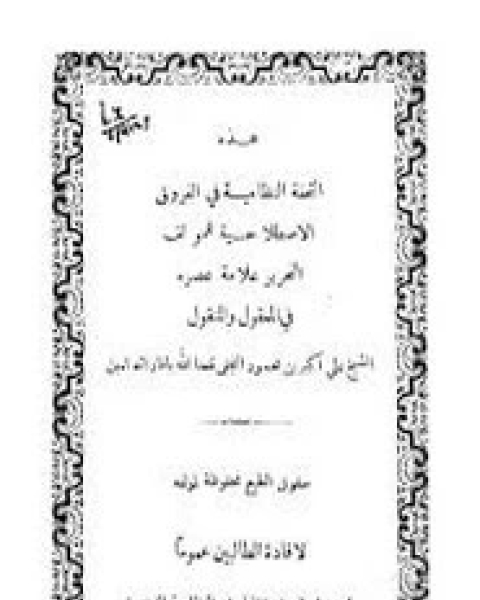 هذه
التحفة النظامية في الفروق
الاصطلاحية لمؤلفه
النحرير علامة عصره
في المعقول والمنقول
الشيخ علي أكبر بن محمود النجفي نفعنا الله بافاداته امين
حقوق الطبع محفوظة لمؤلفه
لافادة الطالبين عموماً